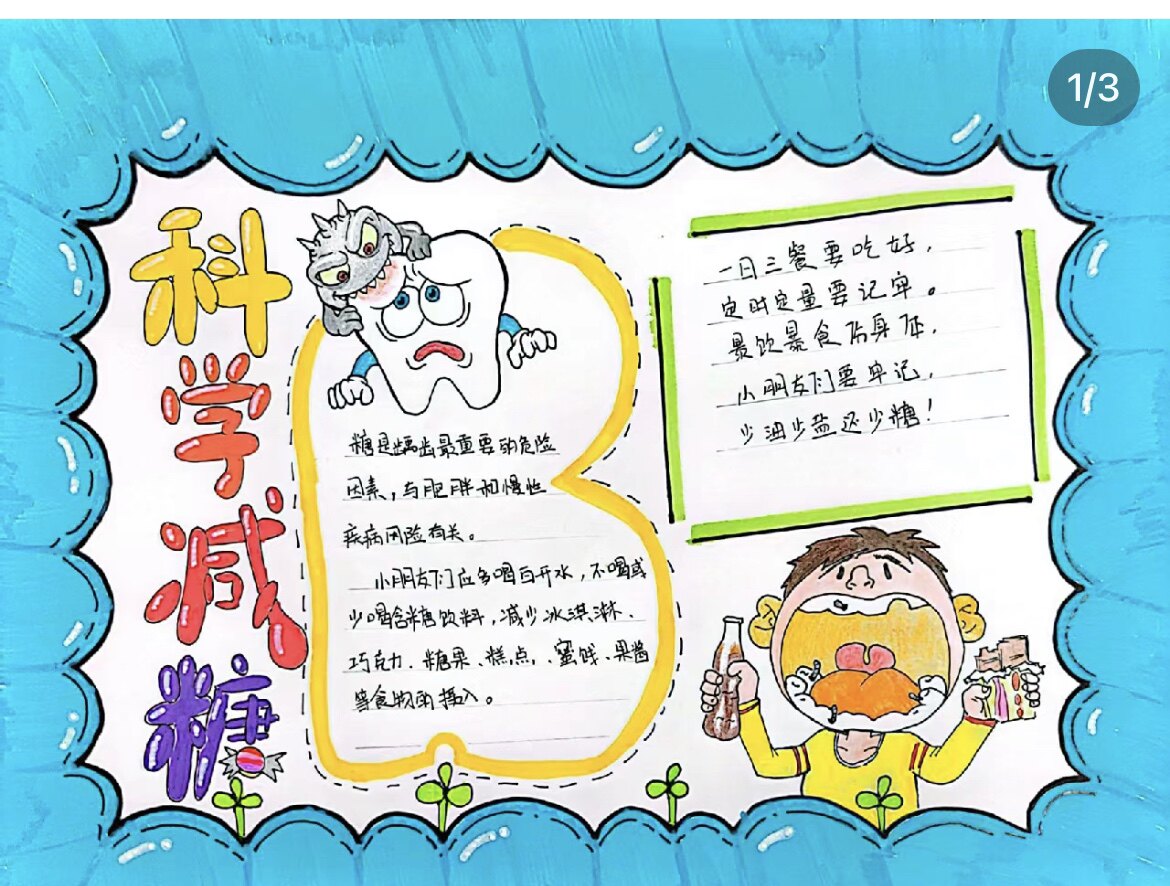 1/3
科学减糖
糖是龋齿最重要的危险
因素，与肥胖和慢性
疾病风险有关。
小朋友们应多喝白开水，不喝或
少喝含糖饮料，减少冰淇淋、
巧克力、糖果、糕点、蜜饯、果酱
等食物的摄入。
一日三餐要吃好，
定时定量要记牢。
暴饮暴食伤身体，
小朋友们要牢记，
少油少盐还少糖！